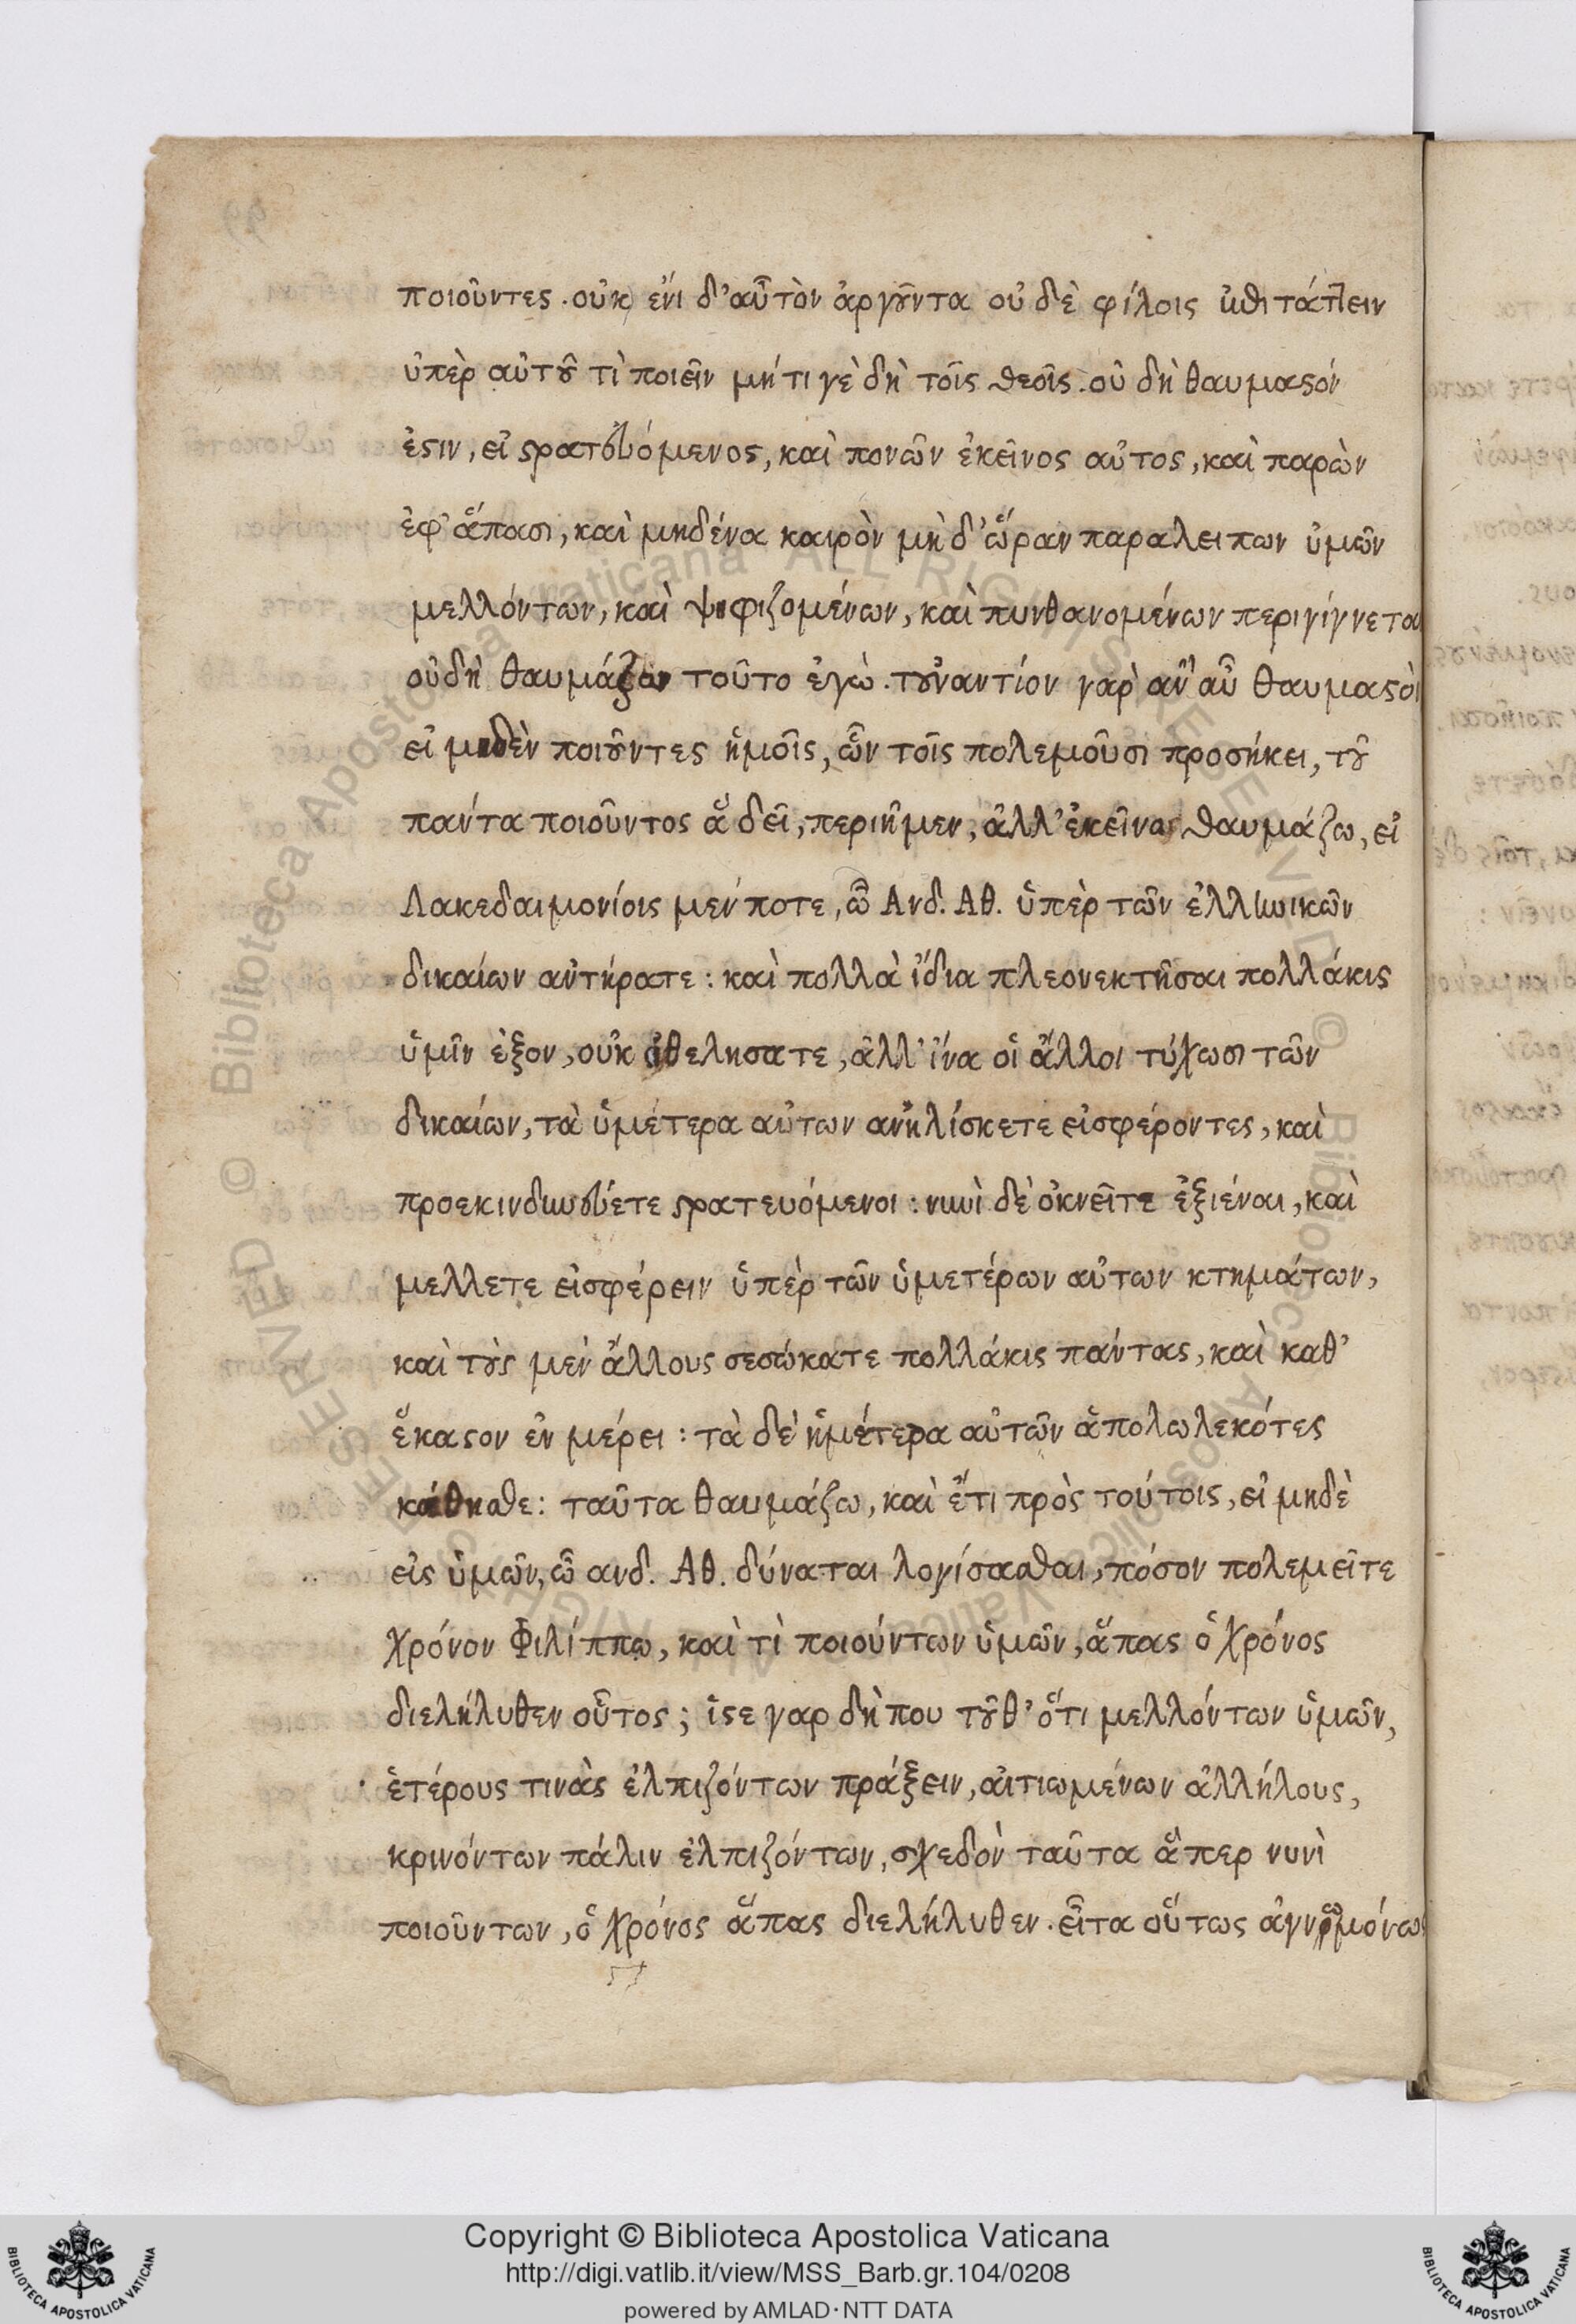 ποιοῦντες. οὐκ ἔνι δ' αὖτὸν ἀργοῦντα οὐ δὲ φίλοις ἐπιτάττειν
ὑπὲρ αὐτοῦ τὶ ποιεῖν μή τι γὲ δὴ τοῖς θεοῖς. οὐ δὴ θαυμαστόν
ἐστιν, εἰ στρατευόμενος, καὶ πονῶν ἐκεῖνος αὐτος, καὶ παρὼν
ἐφ' ἅπασι, καὶ μηδένα καιρὸν μὴ δ' ὥραν παραλειπων ὑμῶν
μελλόντων, καὶ ψηφιζομένων, καὶ πυνθανομένων περιγίγνεται
οὐ δὴ θαυμάζω τοῦτο ἐγὼ. τοὐναντίον γὰρ ἂν αὖ θαυμαστὸι
εἰ μηδὲν ποιοῦντες ἡμοῖς, ὧν τοῖς πολεμοῦσι προσήκει, τοῦ
παντα ποιοῦντος ἅ δεῖ, περιῆμεν, ἀλλ' ἐκεῖνα θαυμάζω, εἰ
Λακεδαιμονίοις μεν ποτε, ὦ Ανδ. Αθ. ὑπὲρ τῶν ἑλληνικῶν
δικαίων αντήρατε: καὶ πολλὰ ἴδια πλεονεκτῆσαι πολλάκις
ὑμῖν ἐξον, οὐκ ἠθελησατε, ἀλλ' ἵνα οἱ ἄλλοι τύχωσι τῶν
δικαίων, τὰ ὑμέτερα αὐτων ανηλίσκετε εἰσφέροντες, καὶ
προεκινδυνεύετε στρατευόμενοι: νυνὶ δὲ ὀκνεῖτε ἐξιέναι, καὶ
μελλετε εἰσφέρειν ὑπὲρ τῶν ὑμετέρων αὐτων κτημάτων,
καὶ τοὺς μεν ἄλλους σεσώκατε πολλάκις παντας, καὶ καθ'
ἕκαστον ἐν μέρει: τὰ δὲ ἡμέτερα αὐτῶν ἀπολωλεκότες
κάθησθε: ταῦτα θαυμάζω, καὶ ἔτι πρὸς τούτοις, εἰ μηδὲ
εἰς ὑμῶν, ὦ ανδ. Αθ. δύναται λογίσασθαι, πόσον πολεμεῖτε
χρόνον Φιλίππω, καὶ τὶ ποιούντων ὑμῶν, ἅπας ὁ χρόνος
διελήλυθεν οὗτος; ἵστε γαρ δὴ που τοῦθ' ὅτι μελλόντων ὑμῶν,
ἑτέρους τινὰς ἐλπιζόντων πράξειν, αἰτιωμένων ἀλλήλους,
κρινόντων πάλιν ἐλπιζόντων, σχεδὸν ταῦτα ἅπερ νυνὶ
ποιοῦντων, ὁ χρόνος ἅπας διελήλυθεν. εἶτα οὕτως
Copyright © Biblioteca Apostolica Vaticana
http://digi.vatlib.it/view/MSS_Barb.gr.104/0208
powered by AMLAD·NTT DATA